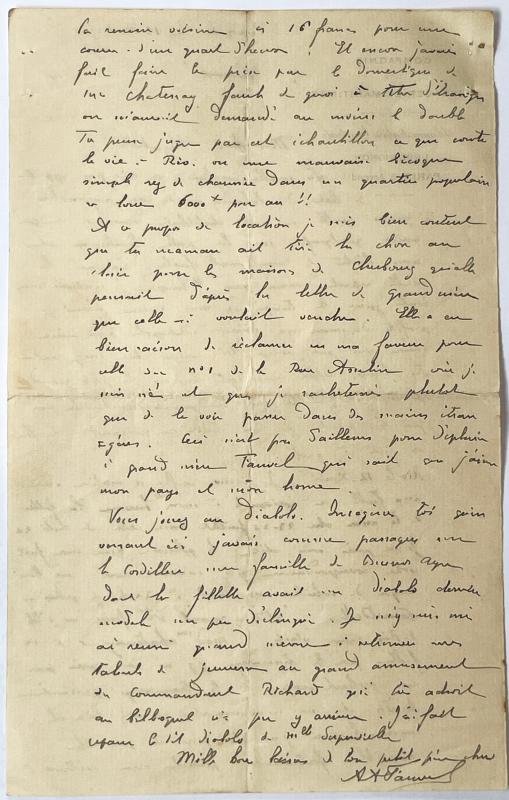 la remise voisine à 16 francs pour une
course d'un quart d'heure ! Et encore j'avais
fait faire le prix par le domestique de
Me Chatenay faute de quoi à titre d'étranger
on m'aurait demandé au moins le double
Tu peux juger par cet échantillon ce que coute
la vie à Rio. ou une mauvaise bicoque
simple rez de chaussée dans un quartier populaire
se loue 6000 par an !!
A ce propos de location je suis bien content
que ta maman ait la chose au
clair pour les maisons de Cherbourg qu'elle
pensait d'après la lettre de grand mère
que celle-ci voulait vendre. Elle a eu
bien raison de réclamer en ma faveur pour
celle du no 1 de la Rue Asselin où je
suis né et que je rachèterai plutot
que de la voir passer dans des mains étran
=gères. Ceci n'est pas d'ailleurs pour déplaire
à grand mère Fauvel qui sait que j'aime
mon pays et mon home.
Vous jouez au Diabolo. Imagine toi qu'en
venant ici j'avais comme passagers sur
la Cordillère une famille de Buenos Ayres
dont la fillette avait un diabolo dernier
modèle un peu déclingué. Je m'y suis mis
ai réussi quand même à retrouver mes
talents de jeunesse au grand amusement
du Commandant Richard qui très adroit
au bilboquet n'a pu y arriver. J'ai fait
réparer le dit diabolo de Mlle
Mille bons baisers de ton petit père cher
A A Fauvel